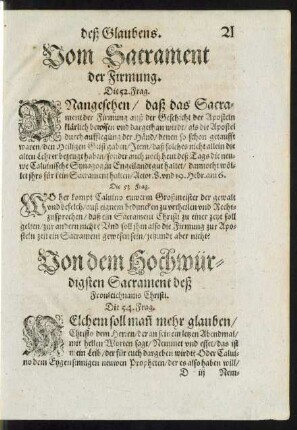 deß Glaubens. 21
Vom Sacrament
der Firmung.
Die 52. Frag.
ANangesehen / daß das Sacra-
ment der Firmung auß der Geschicht der Aposteln
klärlich bewisen vnd dargethan würdt / als die Apostel
durch aufflegung der Händ / denen so schon getaufft
waren / den Heiligen Geist gaben / Item / daß solches nicht allein die
alten Lehrer bezeugt haben / sonder auch noch heut deß Tags die newe
Caluinische Synagog in Engellandt gut haltet / darumb er wöl-
let jhrs für kein Sacrament halten / Actor. 8. vnd 19. Heb. am 6.
Die 53. Frag.
WO her kompt Caluino ewerem Großmeister der gewalt
vnd befelch / auß eignem beduncken zu vrtheilen vnd Recht
zusprechen / daß ein Sacrament Christi zu einer zeyt soll
gelten / zur andern nicht? Vnd soll jhm also die Firmung zur Apo-
steln zeit ein Sacrament gewesen sein / jetzundt aber nicht?
Von dem Hochwür-
digsten Sacrament deß
Fronleichnams Christi.
Die 54. Frag.
WElchem soll mañ mehr glauben /
Christo dem Herren / der an seinem letzen Abendmal /
mit hellen Worten sagt / Nemmet vnd esset / das ist
mein Leib / der für euch dargeben wirdt? Oder Calui-
no dem Eygensinnigen newen Propheten / der es also haben will /
D iij Nem-